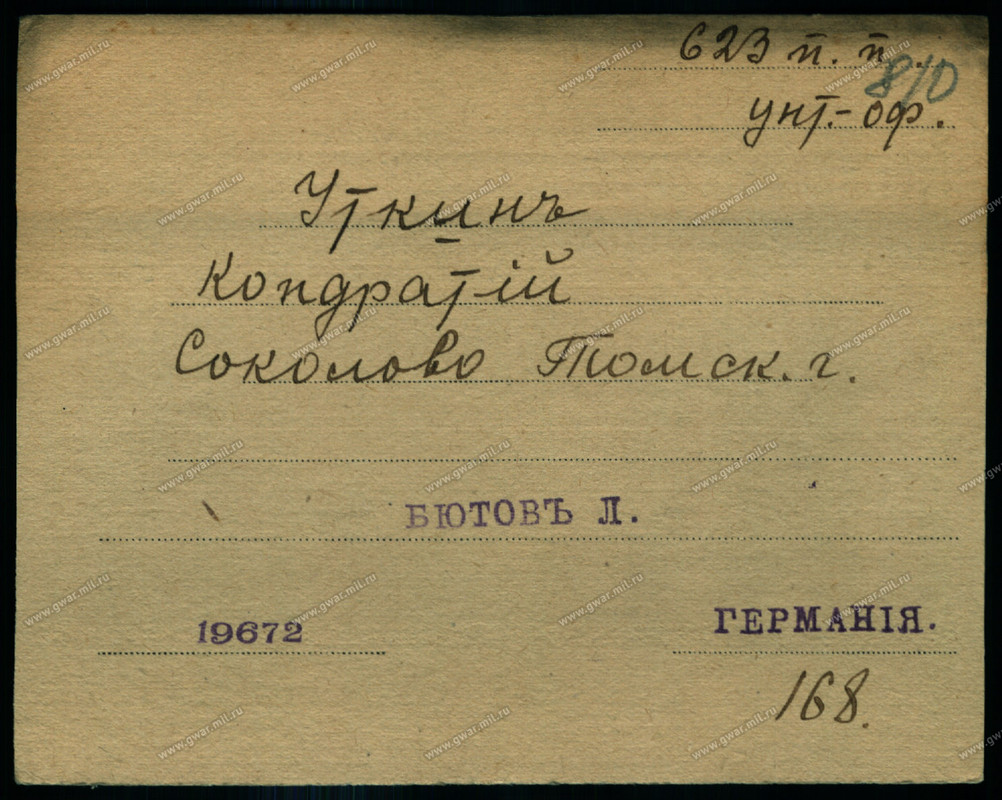 623 п. п.
8/0
унт.-оф.
Уткинъ
Кондратій
Соколово Томск. г.
БЮТОВЪ Л.
19672
ГЕРМАНІЯ.
168.
www.gwar.mil.ru